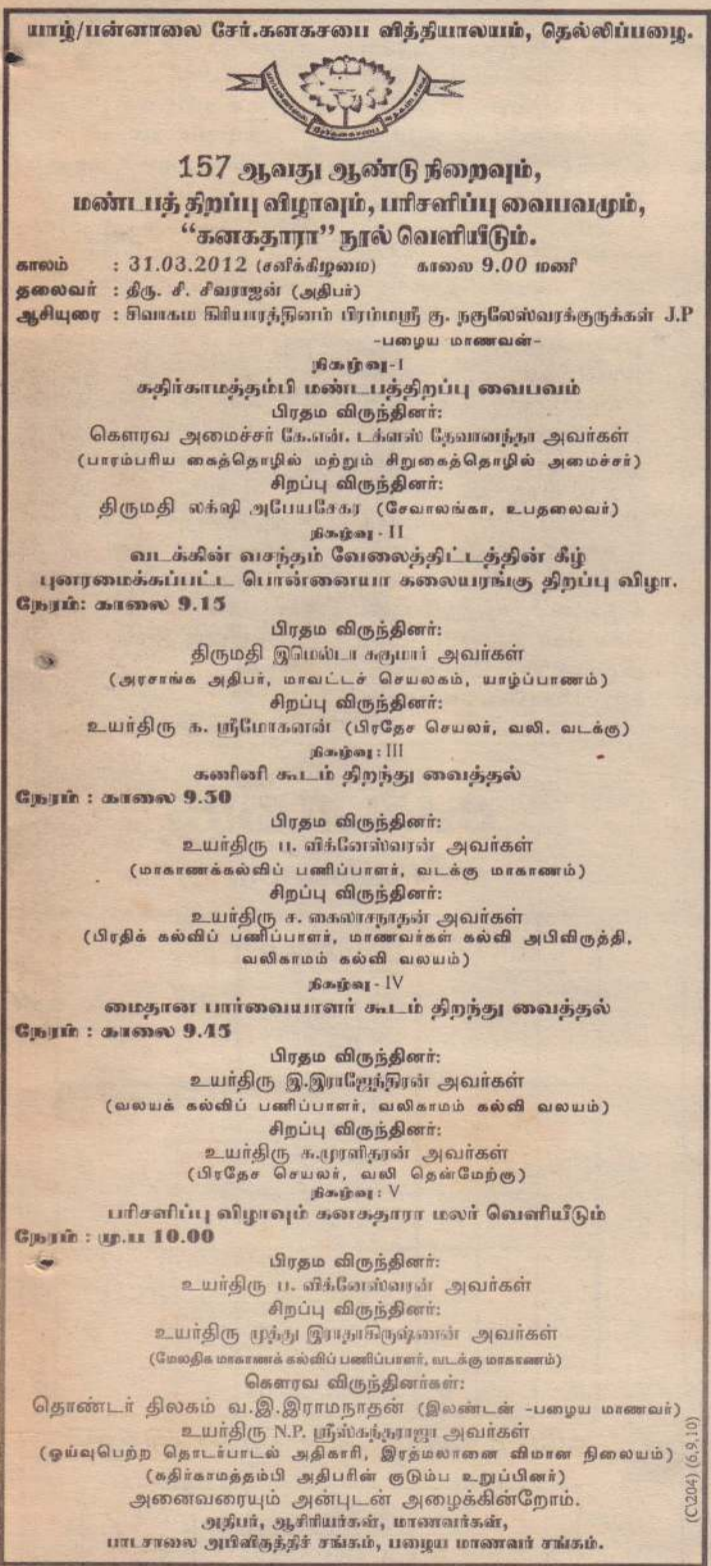 யாழ்/பன்னாலை சேர்.கனகசபை வித்தியாலயம், தெல்லிப்பழை.
157 ஆவது ஆண்டு நிறைவும்,
மண்டபத் திறப்பு விழாவும், பரிசளிப்பு வைபவமும்,
“கனகதாரா” நூல் வெளியீடும்.
காலம் : 31.03.2012 (சனிக்கிழமை) காலை 9.00 மணி
தலைவர் : திரு. சி. சிவராஜன் (அதிபர்)
ஆசியுரை : சிவாகம கிரியாரத்தினம் பிரம்மஸ்ரீ கு. நகுலேஸ்வரக்குருக்கள் J.P
-பழைய மாணவன்-
நிகழ்வு-I
கதிர்காமத்தம்பி மண்டபத்திறப்பு வைபவம்
பிரதம விருந்தினர்:
கௌரவ அமைச்சர் கே.என். டக்ளஸ் தேவானந்தா அவர்கள்
(பாரம்பரிய கைத்தொழில் மற்றும் சிறுகைத்தொழில் அமைச்சர்)
சிறப்பு விருந்தினர்:
திருமதி லக்ஷி அபேயசேகர (சேவாலங்கா, உபதலைவர்)
நிகழ்வு - II
வடக்கின் வசந்தம் வேலைத்திட்டத்தின் கீழ்
புனரமைக்கப்பட்ட பொன்னையா கலையரங்கு திறப்பு விழா.
நேரம்: காலை 9.15
பிரதம விருந்தினர்:
திருமதி இமெல்டா சுகுமார் அவர்கள்
(அரசாங்க அதிபர், மாவட்டச் செயலகம், யாழ்ப்பாணம்)
சிறப்பு விருந்தினர்:
உயர்திரு க. ஸ்ரீமோகனன் (பிரதேச செயலர், வலி. வடக்கு)
நிகழ்வு : III
கணினி கூடம் திறந்து வைத்தல்
நேரம் : காலை 9.30
பிரதம விருந்தினர்:
உயர்திரு ப. விக்னேஸ்வரன் அவர்கள்
(மாகாணக்கல்விப் பணிப்பாளர், வடக்கு மாகாணம்)
சிறப்பு விருந்தினர்:
உயர்திரு ச. கைலாசநாதன் அவர்கள்
(பிரதிக் கல்விப் பணிப்பாளர், மாணவர்கள் கல்வி அபிவிருத்தி,
வலிகாமம் கல்வி வலயம்)
நிகழ்வு - IV
மைதான பார்வையாளர் கூடம் திறந்து வைத்தல்
நேரம் : காலை 9.45
பிரதம விருந்தினர்:
உயர்திரு இ.இராஜேந்திரன் அவர்கள்
(வலயக் கல்விப் பணிப்பாளர், வலிகாமம் கல்வி வலயம்)
சிறப்பு விருந்தினர்:
உயர்திரு சு.முரளிதரன் அவர்கள்
(பிரதேச செயலர், வலி தென்மேற்கு)
நிகழ்வு : V
பரிசளிப்பு விழாவும் கனகதாரா மலர் வெளியீடும்
நேரம் : மு.ப 10.00
பிரதம விருந்தினர்:
உயர்திரு ப. விக்னேஸ்வரன் அவர்கள்
சிறப்பு விருந்தினர்:
உயர்திரு முத்து இராதாகிருஷ்ணன் அவர்கள்
(மேலதிக மாகாணக் கல்விப் பணிப்பாளர், வடக்கு மாகாணம்)
கௌரவ விருந்தினர்கள்:
தொண்டர் திலகம் வ.இ.இராமநாதன் (இலண்டன் -பழைய மாணவர்)
உயர்திரு N.P. ஸ்ரீஸ்கந்தராஜா அவர்கள்
(ஓய்வுபெற்ற தொடர்பாடல் அதிகாரி, இரத்மலானை விமான நிலையம்)
(கதிர்காமத்தம்பி அதிபரின் குடும்ப உறுப்பினர்)
அனைவரையும் அன்புடன் அழைக்கின்றோம்.
அதிபர், ஆசிரியர்கள், மாணவர்கள்,
பாடசாலை அபிவிருத்திச் சங்கம், பழைய மாணவர் சங்கம்.
(C\204) (6,9,10)